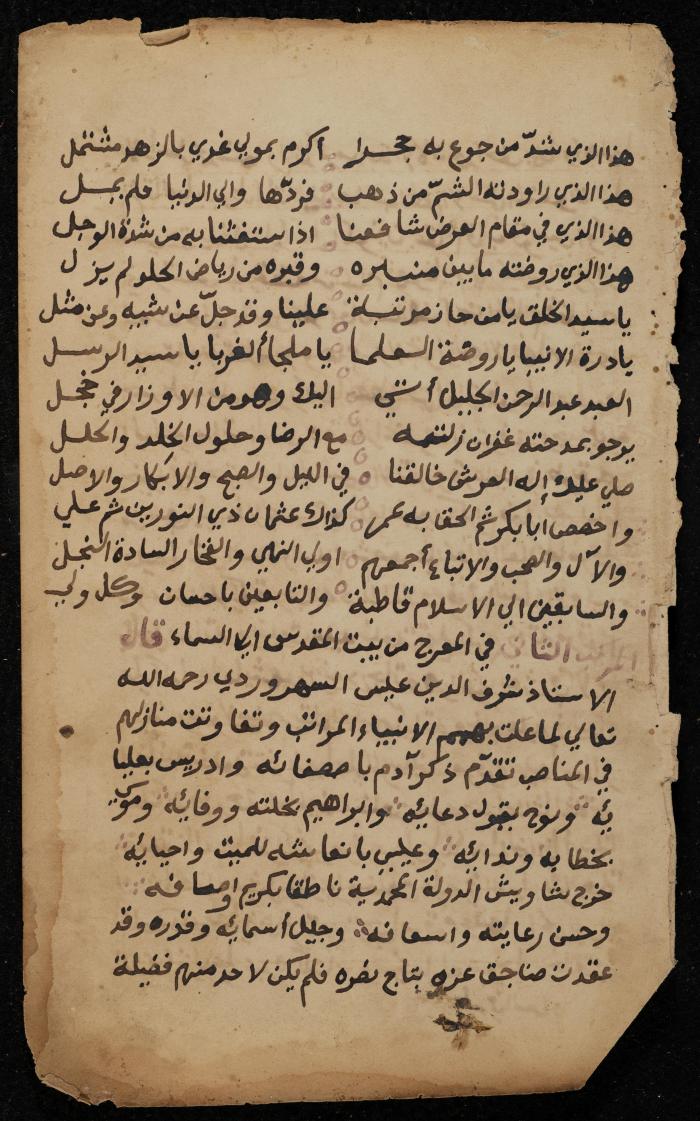 هذا الذي شدّ من جوع به حجرا اكرم بمولي غدي بالزهد مشتمل
هذا الذي راودته الشمّ من ذهب فردّها والي الدنيا فلم يمل
هذا الذي في مقام العرض شافعنا اذا ستغثنا به من شدة الوجل
هذا الذي روضته ما بين منبره وقبره من رياض الخلد لم يزل
يا سيد الخلق يا من حاز مرتبة علينا وقد جلّ عن شبيه وعن مثل
يا درة الانبيا يا روضة العلما يا ملجأ الغربا يا سيد الرسل
العبد عبد الرحمن الجليل أتي اليك وهو من الاوزار في خجل
يرجو بمدحته غفران زلته مع الرضا وحلول الخلد والحلل
صلي عليك إله العرش خالقنا في الليل والصبح والابكار والاصل
واخصص ابا بكر ثم الحقا به عمر كذاك عثمان ذي النورين ثم علي
والآل والصحب والاتباع أجمعهم اولي النهي والفخار السادة النجل
والسابقين الي الاسلام قاطبة والتابعين باحسان وكل ولي
الثاني في المعرج من بيت المقدس الي السماء قال
الاستاذ شرف الدين عيسي السهروردي رحمه الله
تعالي لما علت بهم الانبياء المراتب وتفاوتت منازلهم
في المناصب تقدّم ذكر آدم باصصفائه وادريس بعليا
ئه ونوح بقبول دعائه وابراهيم بخلته ووفائه وموسي
بخطابه وندائه وعيسي بانعاشه للميت واحيائه
خرج شاويش الدولة المحمدية ناطقا بكريم اوصافه
وحسن رعايته واسعافه وجليل أسمائه وقدره وقد
عقدت صناجق عزه بتاج نصره فلم يكن لاحد منهم فضيلة